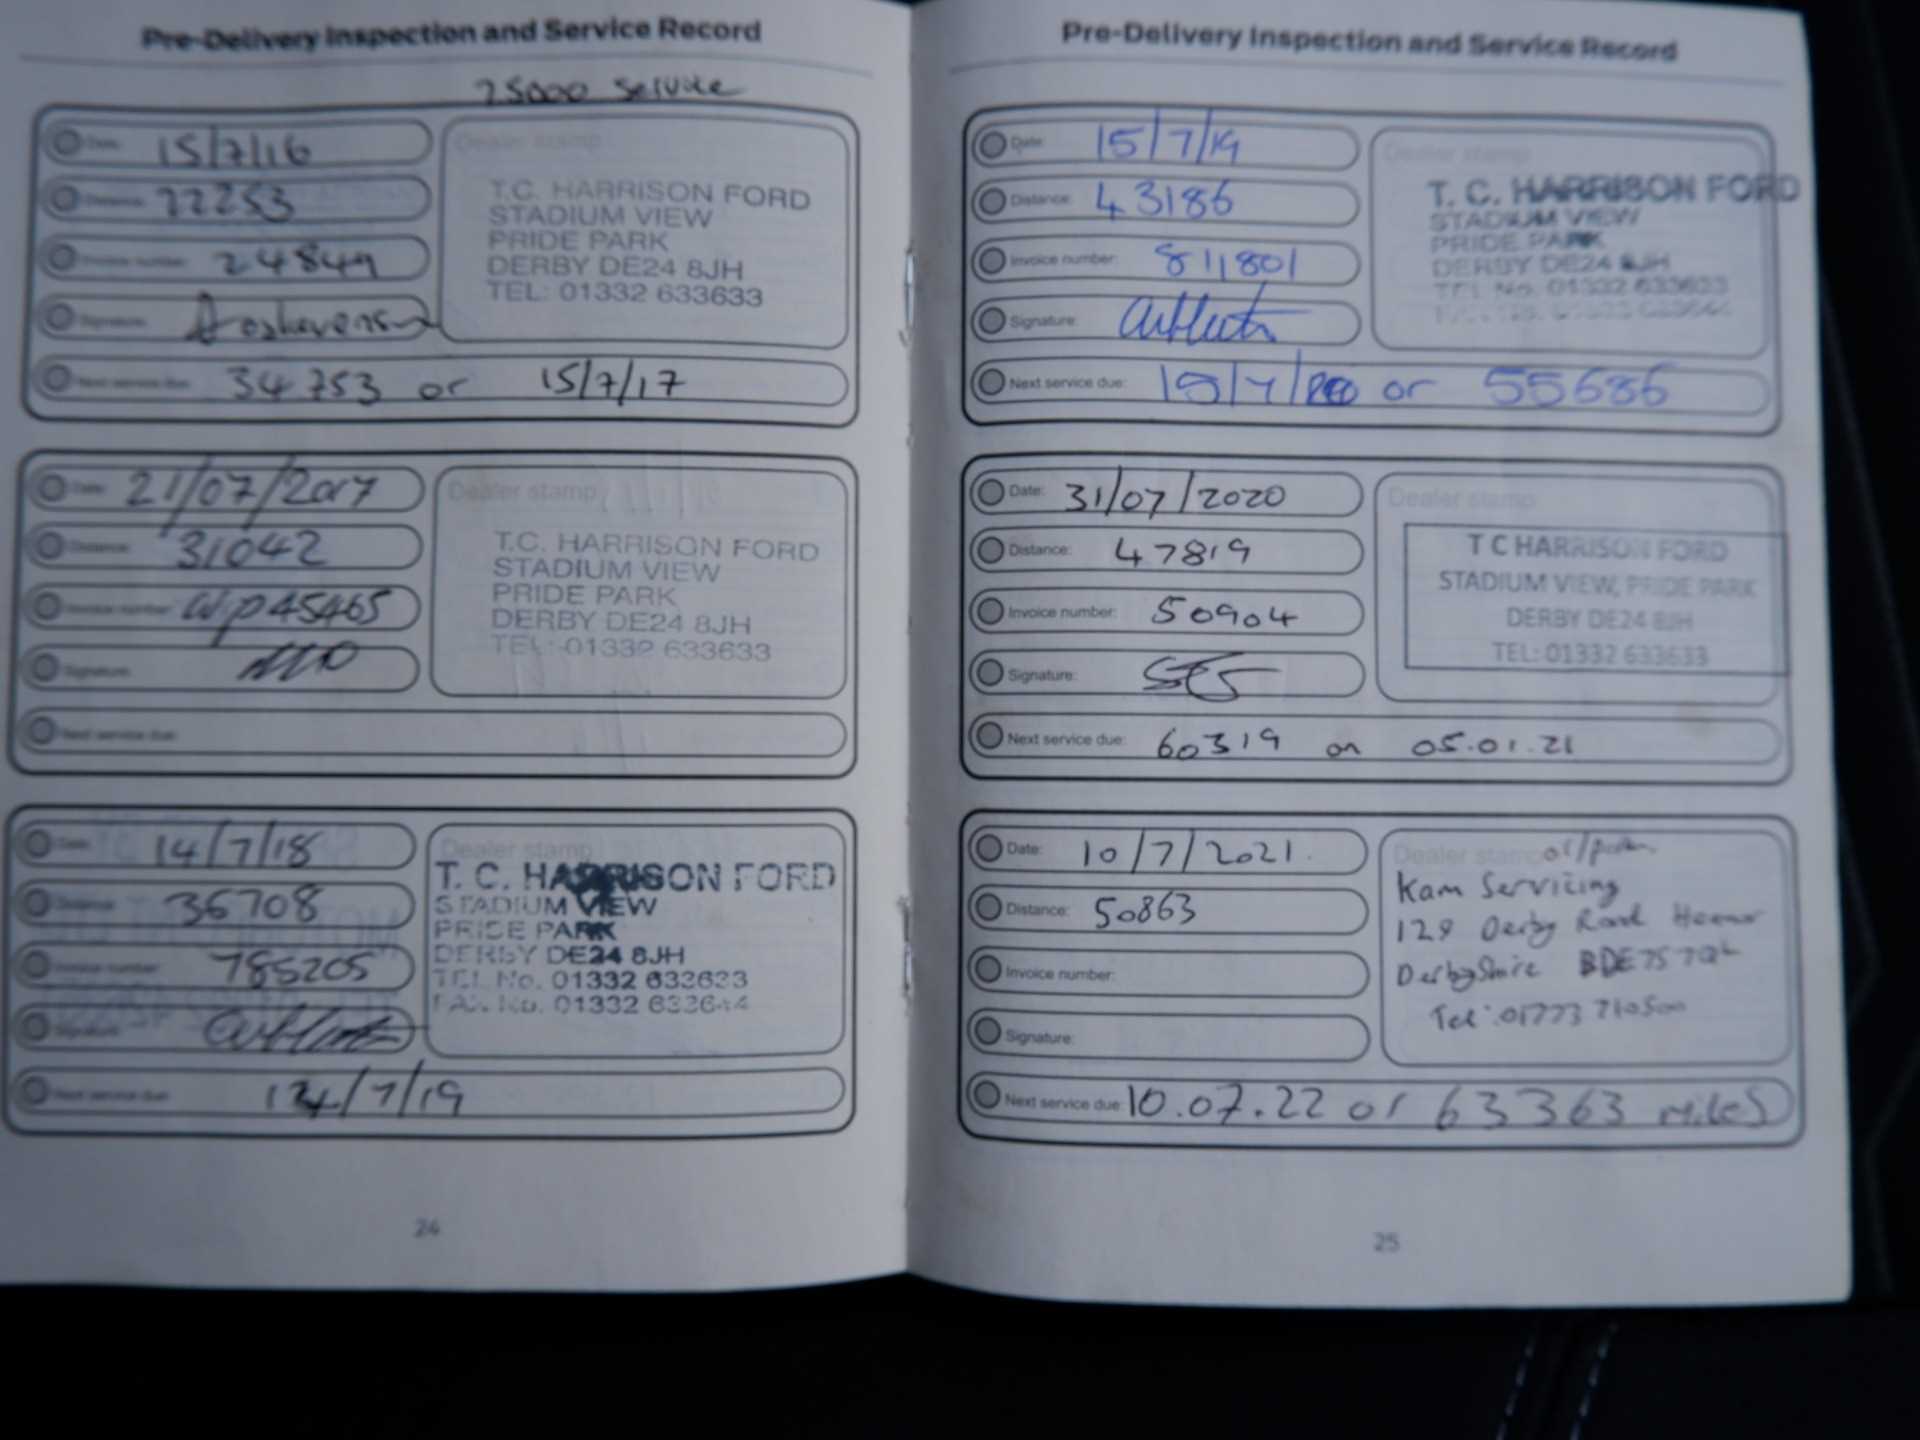 Pre-Delivery Inspection and Service Record
25000 Service
Date: 15/7/16
Distance: 22253
Invoice number: 24849
Signature:
Next service due: 34753 or 15/7/17
Dealer stamp
T.C. HARRISON FORD
STADIUM VIEW
PRIDE PARK
DERBY DE24 8JH
TEL: 01332 633633
Date: 21/07/2017
Distance: 31042
Invoice number: Wip45465
Signature:
Next service due:
Dealer stamp
T.C. HARRISON FORD
STADIUM VIEW
PRIDE PARK
DERBY DE24 8JH
TEL: 01332 633633
Date: 14/7/18
Distance: 36708
Invoice number: 785205
Signature:
Next service due: 14/7/19
Dealer stamp
T. C. HARRISON FORD
STADIUM VIEW
PRIDE PARK
DERBY DE24 8JH
TEL No. 01332 633633
FAX No. 01332 633644
24
Pre-Delivery Inspection and Service Record
Date: 15/7/19
Distance: 43186
Invoice number: 811801
Signature:
Next service due: 15/7/20 or 55686
Dealer stamp
T. C. HARRISON FORD
STADIUM VIEW
PRIDE PARK
DERBY DE24 8JH
TEL No. 01332 633633
Date: 31/07/2020
Distance: 47819
Invoice number: 50904
Signature:
Next service due: 60319 on 05.01.21
Dealer stamp
T C HARRISON FORD
STADIUM VIEW, PRIDE PARK
DERBY DE24 8JH
TEL: 01332 633633
Date: 10/7/2021.
Distance: 50863
Invoice number:
Signature:
Next service due: 10.07.22 or 63363 miles
Dealer stamp
Kam Servicing
129 Derby Road Heanor
Derbyshire DE75 7QL
Tel: 01773 710500
25